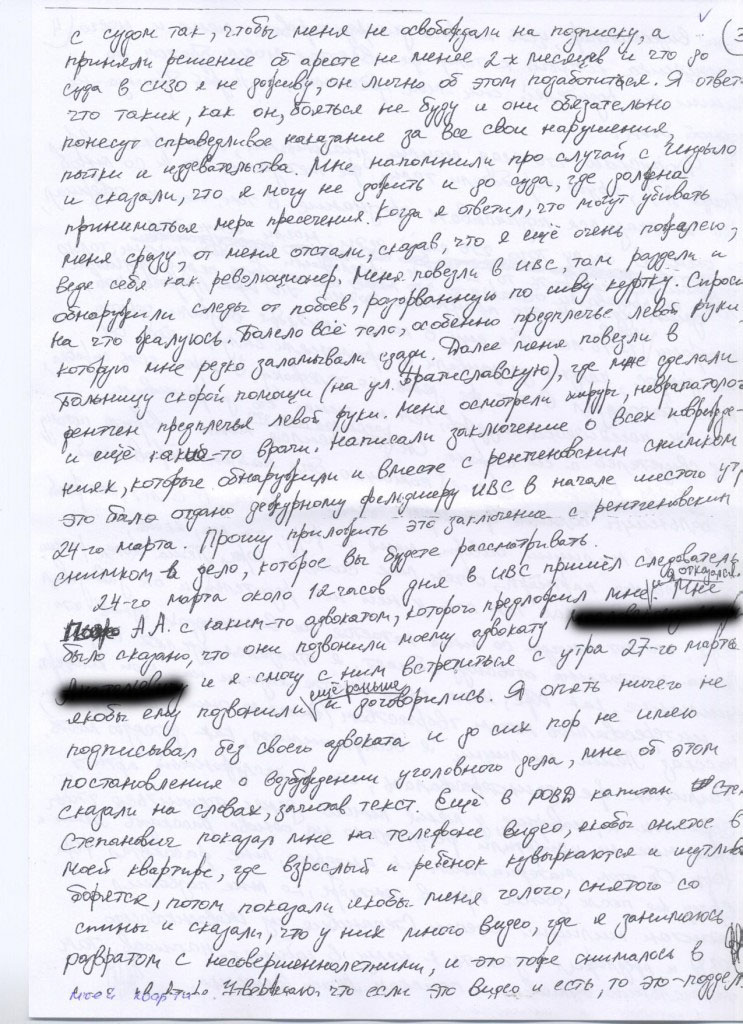 (3
с судом так, чтобы меня не освобождали на подписку, а
приняли решение об аресте не менее 2-х месяцев и что до
суда в СИЗО я не доживу, он лично об этом позаботиться. Я ответ
что таких, как он, бояться не буду и они обязательно
понесут справедливое наказание за все свои нарушения,
пытки и издевательства. Мне напомнили про случай с Индыло
и сказали, что я могу не дожить и до суда, где должна
приниматься мера пресечения. Когда я ответил, что могут убивать
меня сразу, от меня отстали, сказав, что я ещё очень пожалею,
веде себя как революционер. Меня повезли в ИВС, там раздели и
обнаружили следы от побоев, разорванную по шву куртку. Спроси
на что жалуюсь. Болело всё тело, особенно предплечье левой руки
которую мне резко заламывали сзади. Далее меня повезли в
Больницу скорой помощи (на ул. Братиславскую), где мне сделали
рентген предплечья левой руки. Меня осмотрели хирург, неврапатолог
и ещё какие-то врачи. Написали заключение о всех поврежде-
ниях, которые обнаружили и вместе с рентгеновским снимком
это было отдано дежурному фельдшеру ИВС в начале шестого ут
24-го марта. Прошу приложить это заключение с рентгеновским
снимком в дело, которое вы будете рассматривать.
24-го марта около 12 часов дня в ИВС пришёл следователь
А.А. с каким-то адвокатом, которого предложил мне. я отказался. Мне
было сказано, что они позвонили моему адвокату
и я смогу с ним встретиться с утра 27-го марта
якобы ему позвонили ещё раньше и договорились. Я опять ничего не
подписывал без своего адвоката и до сих пор не имею
постановления о возбуждении уголовного дела, мне об этом
сказали на словах, зачитав текст. Ещё в РОВД капитан Сте
Степанович показал мне на телефоне видео, якобы снятое в
моей квартире, где взрослый и ребёнок кувыркаются и шутлив
борятся, потом показали якобы меня голого, снятого со
спины и сказали, что у них много видео, где я занимаюсь
развратом с несовершеннолетними, и это тоже снималось в
моей кварти Утверждаю, что если это видео и есть, то это - поддел